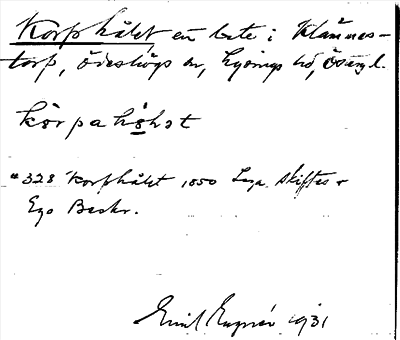 Korphålet en bete i Klämmes-
torp, Ödeshögs sn, Lysings hd, Östergl.
körpahǫ̈lət
*328 Korphålet 1850 Laga skiftes
Ego Beskr.
Emil 1931